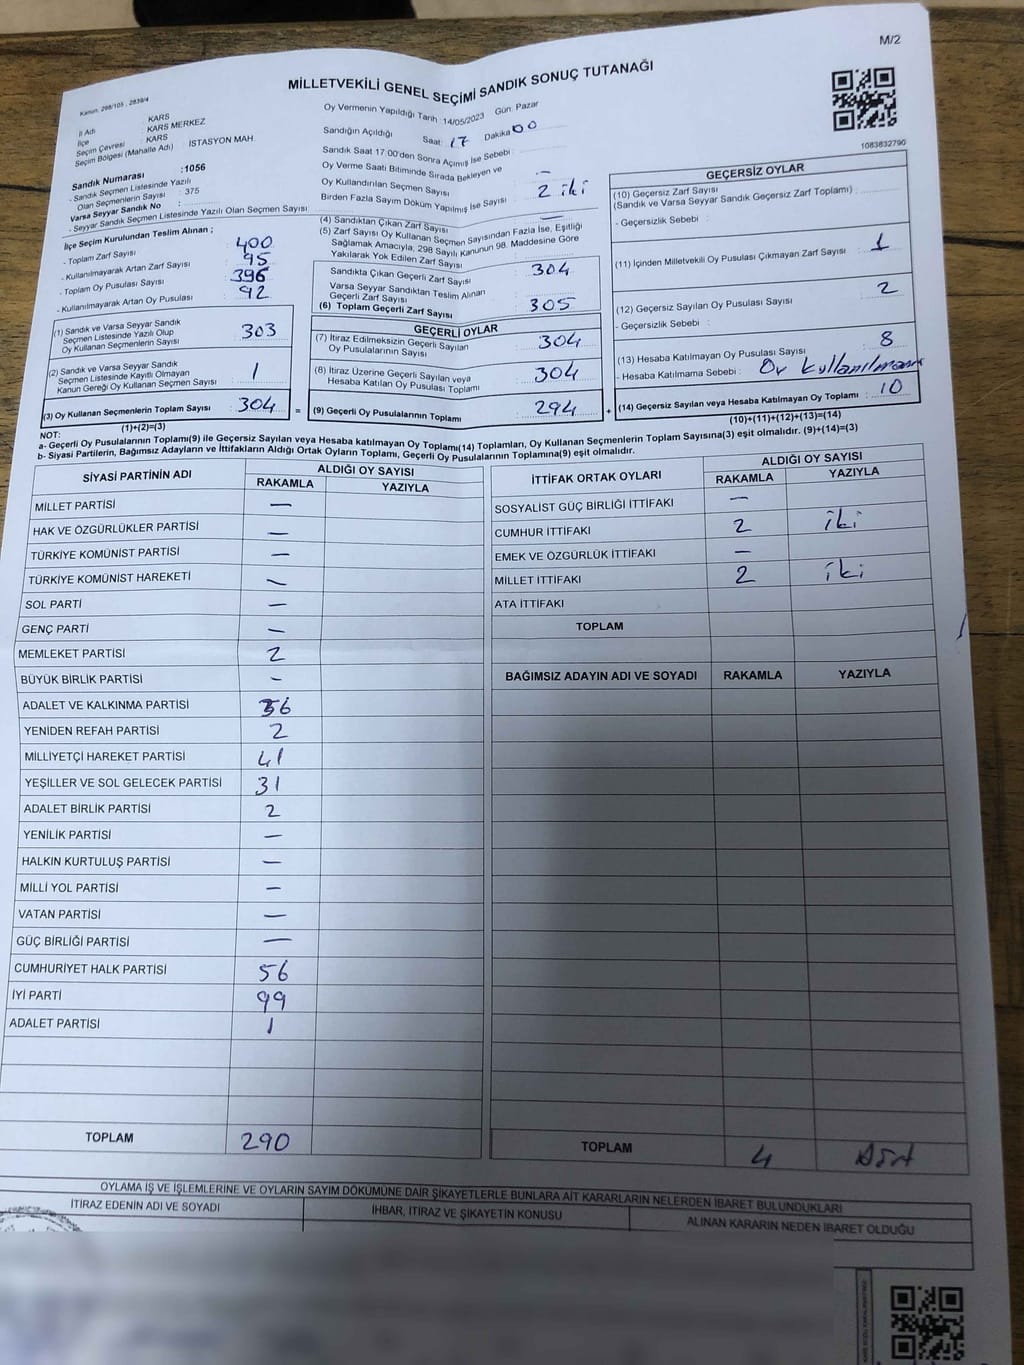 M/2
MİLLETVEKİLİ GENEL SEÇİMİ SANDIK SONUÇ TUTANAĞI
Kanun: 298/105 , 2839/4
İl Adı : KARS
İlçe : KARS MERKEZ
Seçim Çevresi : KARS
Seçim Bölgesi (Mahalle Adı) : İSTASYON MAH.
Sandık Numarası :1056
- Sandık Seçmen Listesinde Yazılı
Olan Seçmenlerin Sayısı : 375
Varsa Seyyar Sandık No :
- Seyyar Sandık Seçmen Listesinde Yazılı Olan Seçmen Sayısı :
İlçe Seçim Kurulundan Teslim Alınan ;
- Toplam Zarf Sayısı : 400
- Kullanılmayarak Artan Zarf Sayısı : 95
- Toplam Oy Pusulası Sayısı : 396
- Kullanılmayarak Artan Oy Pusulası : 92
(1) Sandık ve Varsa Seyyar Sandık
Seçmen Listesinde Yazılı Olup
Oy Kullanan Seçmenlerin Sayısı : 303
(2) Sandık ve Varsa Seyyar Sandık
Seçmen Listesinde Kayıtlı Olmayan
Kanun Gereği Oy Kullanan Seçmen Sayısı : 1
(3) Oy Kullanan Seçmenlerin Toplam Sayısı : 304 =
(1)+(2)=(3)
Oy Vermenin Yapıldığı Tarih 14/05/2023 Gün: Pazar
Sandığın Açıldığı Saat: 17 Dakika 00
Sandık Saat 17.00'den Sonra Açımış İse Sebebi :
Oy Verme Saati Bitiminde Sırada Bekleyen ve
Oy Kullandırılan Seçmen Sayısı : —
Birden Fazla Sayım Döküm Yapılmış İse Sayısı : 2 iki
(4) Sandıktan Çıkan Zarf Sayısı : —
(5) Zarf Sayısı Oy Kullanan Seçmen Sayısından Fazla İse, Eşitliği
Sağlamak Amacıyla, 298 Sayılı Kanunun 98. Maddesine Göre
Yakılarak Yok Edilen Zarf Sayısı :
Sandıkta Çıkan Geçerli Zarf Sayısı : 304
Varsa Seyyar Sandıktan Teslim Alınan
Geçerli Zarf Sayısı :
(6) Toplam Geçerli Zarf Sayısı : 305
GEÇERLİ OYLAR
(7) İtiraz Edilmeksizin Geçerli Sayılan
Oy Pusulalarının Sayısı : 304
(8) İtiraz Üzerine Geçerli Sayılan veya
Hesaba Katılan Oy Pusulası Toplamı : 304
(9) Geçerli Oy Pusulalarının Toplamı : 294 +
1083832790
GEÇERSİZ OYLAR
(10) Geçersiz Zarf Sayısı
(Sandık ve Varsa Seyyar Sandık Geçersiz Zarf Toplamı) :
- Geçersizlik Sebebi :
(11) İçinden Milletvekili Oy Pusulası Çıkmayan Zarf Sayısı : 1
(12) Geçersiz Sayılan Oy Pusulası Sayısı : 2
- Geçersizlik Sebebi :
(13) Hesaba Katılmayan Oy Pusulası Sayısı : 8
- Hesaba Katılmama Sebebi : Oy kullanılmamış
(14) Geçersiz Sayılan veya Hesaba Katılmayan Oy Toplamı : 10
(10)+(11)+(12)+(13)=(14)
NOT:
a- Geçerli Oy Pusulalarının Toplamı(9) ile Geçersiz Sayılan veya Hesaba katılmayan Oy Toplamı(14) Toplamları, Oy Kullanan Seçmenlerin Toplam Sayısına(3) eşit olmalıdır. (9)+(14)=(3)
b- Siyasi Partilerin, Bağımsız Adayların ve İttifakların Aldığı Ortak Oyların Toplamı, Geçerli Oy Pusulalarının Toplamına(9) eşit olmalıdır.
SİYASİ PARTİNİN ADI ALDIĞI OY SAYISI
RAKAMLA YAZIYLA
MİLLET PARTİSİ —
HAK VE ÖZGÜRLÜKLER PARTİSİ —
TÜRKİYE KOMÜNİST PARTİSİ —
TÜRKİYE KOMÜNİST HAREKETİ —
SOL PARTİ —
GENÇ PARTİ —
MEMLEKET PARTİSİ 2
BÜYÜK BİRLİK PARTİSİ —
ADALET VE KALKINMA PARTİSİ 56
YENİDEN REFAH PARTİSİ 2
MİLLİYETÇİ HAREKET PARTİSİ 41
YEŞİLLER VE SOL GELECEK PARTİSİ 31
ADALET BİRLİK PARTİSİ 2
YENİLİK PARTİSİ —
HALKIN KURTULUŞ PARTİSİ —
MİLLİ YOL PARTİSİ —
VATAN PARTİSİ —
GÜÇ BİRLİĞİ PARTİSİ —
CUMHURİYET HALK PARTİSİ 56
İYİ PARTİ 99
ADALET PARTİSİ 1
TOPLAM 290
İTTİFAK ORTAK OYLARI ALDIĞI OY SAYISI
RAKAMLA YAZIYLA
SOSYALİST GÜÇ BİRLİĞİ İTTİFAKI —
CUMHUR İTTİFAKI 2 iki
EMEK VE ÖZGÜRLÜK İTTİFAKI —
MİLLET İTTİFAKI 2 iki
ATA İTTİFAKI
TOPLAM
BAĞIMSIZ ADAYIN ADI VE SOYADI RAKAMLA YAZIYLA
TOPLAM 4 dört
OYLAMA İŞ VE İŞLEMLERİNE VE OYLARIN SAYIM DÖKÜMÜNE DAİR ŞİKAYETLERLE BUNLARA AİT KARARLARIN NELERDEN İBARET BULUNDUKLARI
İTİRAZ EDENİN ADI VE SOYADI İHBAR, İTİRAZ VE ŞİKAYETİN KONUSU ALINAN KARARIN NEDEN İBARET OLDUĞU